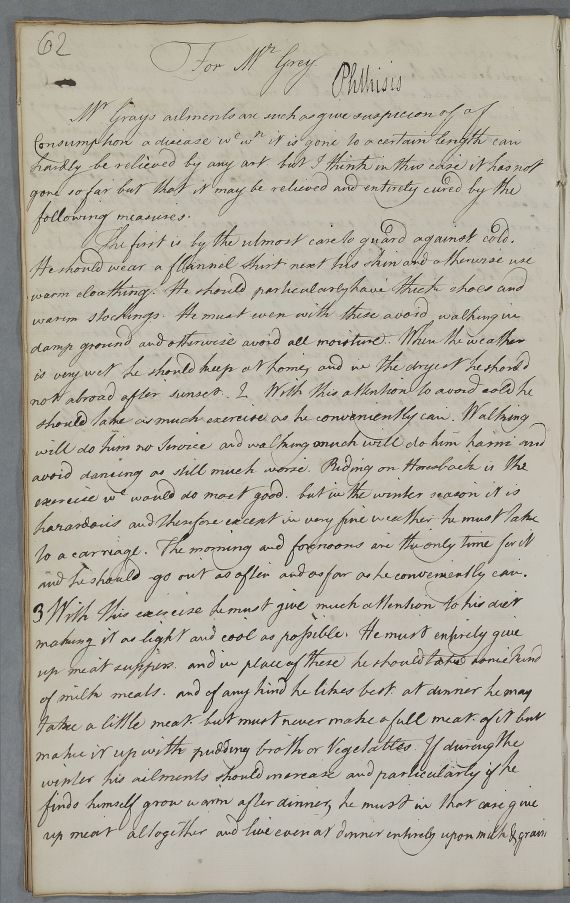 62
For Mr Grey
Phthisis
Mr Grays ailments are such as give suspicion of a
Consumption a disease wc wn it is gone to a certain length can
hardly be relieved by any art but I think in this case it has not
gone so far but that it may be relieved and entirely cured by the
following measures.
The first is by the utmost care to guard against cold.
He should wear a flannel shirt next his skin and otherwise use
warm cloathing. He should particularly have thick shoes and
warm stockings. He must even with these avoid walking in
damp ground and otherwise avoid all moisture. When the weather
is very wet he should keep at home, and in the dryest he should
not abroad after sunset. 2 With this attention to avoid cold he
should take as much exercise as he conveniently can. Walking
will do him no service and walking much will do him harm and
avoid dancing as still much worse. Riding on Horseback is the
exercise wc would do most good. but in the winter season it is
hazardous and therefore except in very fine weather he must take
to a carriage. The morning and forenoons are the only time for it
and he should go out as often and as far as he conveniently can.
3 With this exercise he must give much attention to his diet
making it as light and cool as possible. He must entirely give
up meat suppers. and in place of these he should take some kind
of milk meals. and of any kind he likes best. at dinner he may
take a little meat. but must never make a full meat. of it but
make it up with pudding broth or Vegetables. If during the
winter his ailments should increase and particularly if he
finds himself grow warm after dinner, he must in that case give
up meat altogether and live even at dinner entirely upon milk & grain